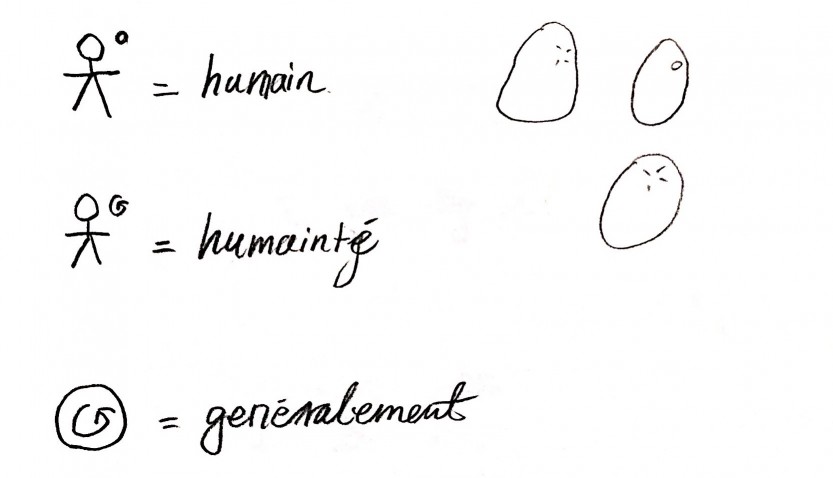 = humain.
= humainté
= generalement